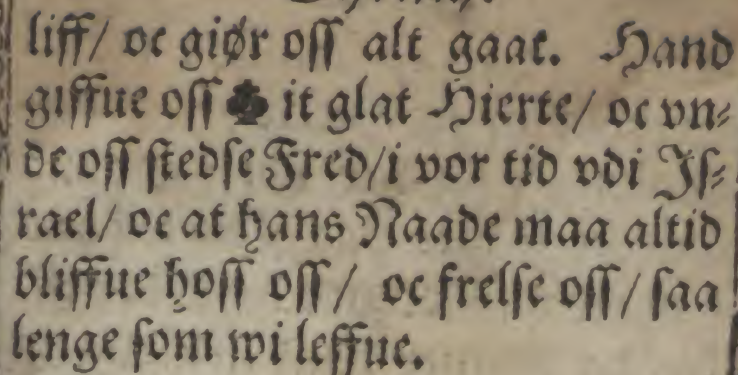 liff/ oc giør oss alt gaat. Hand
giffue oss it glat Hierte/ oc vn⸗
de oss stedse Fred/i vor tid vdi Js⸗
rael/ oc at hans Naade maa altid
bliffue hoss oss/ oc frelse oss/ saa
lenge som wi leffue.